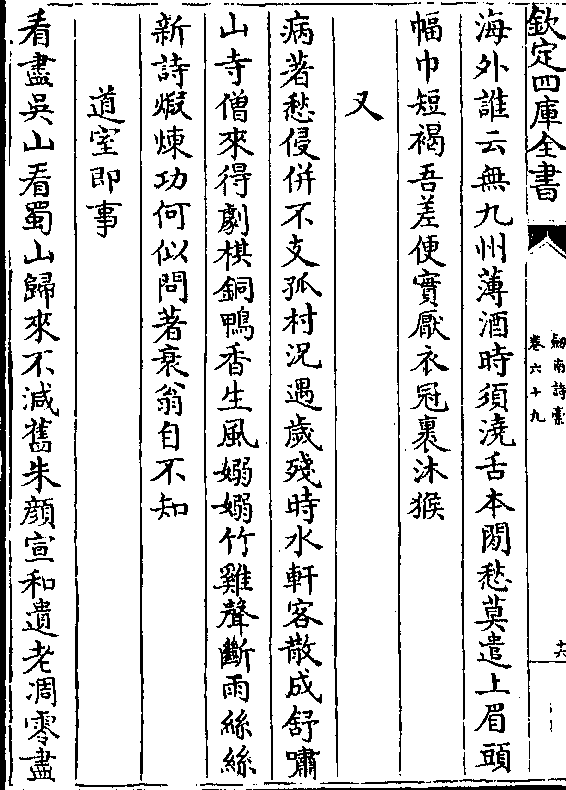 欽定四庫全書
劔南詩藁
卷六十九
十六
海外誰云無九州薄酒時須澆舌本閒愁莫遣上眉頭
幅巾短褐吾差便實厭衣冠裹沐猴
又
病著愁侵併不支孤村況遇歲殘時水軒客散成舒嘯
山寺僧來得劇棋銅鴨香生風嫋嫋竹雞聲斷雨絲絲
新詩煆煉功何似問著衰翁自不知
道室即事
看盡吳山看蜀山歸來不減舊朱顔宣和遺老凋零盡